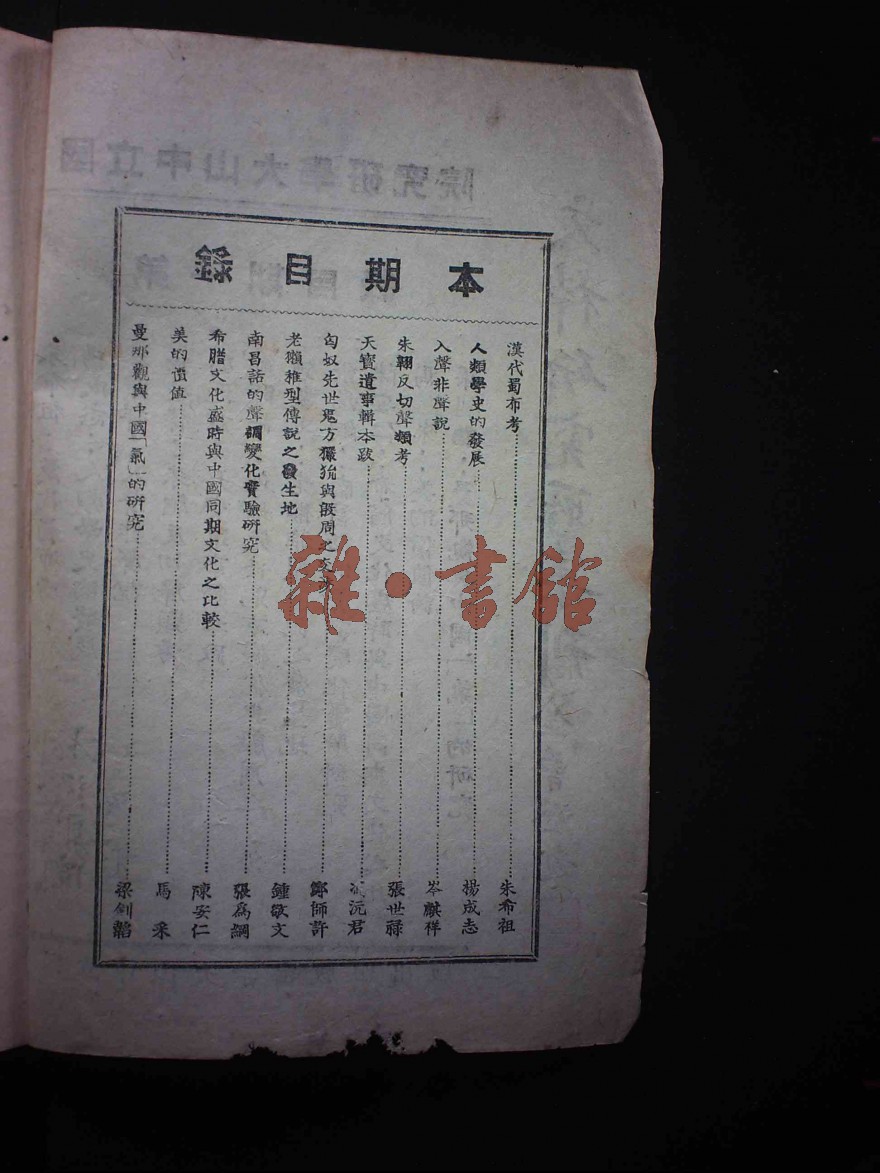 本期目錄
漢代蜀布考 朱希祖
人類學史的發展 楊成志
入聲非聲說 岑麒祥
朱翱反切聲類考 張世祿
天寶遺事輯本跋 馮沅君
匈奴先世鬼方玁狁與殷周之 鄭師許
老獺稚型傳說之發生地 鍾敬文
南昌話的聲調變化實驗研究 張為綱
希腊文化盛時與中國同期文化之比較 陳安仁
美的價值 馬采
曼那觀與中國「氣」的研究 梁釗韜
雜·書館
國立中山大學研究院